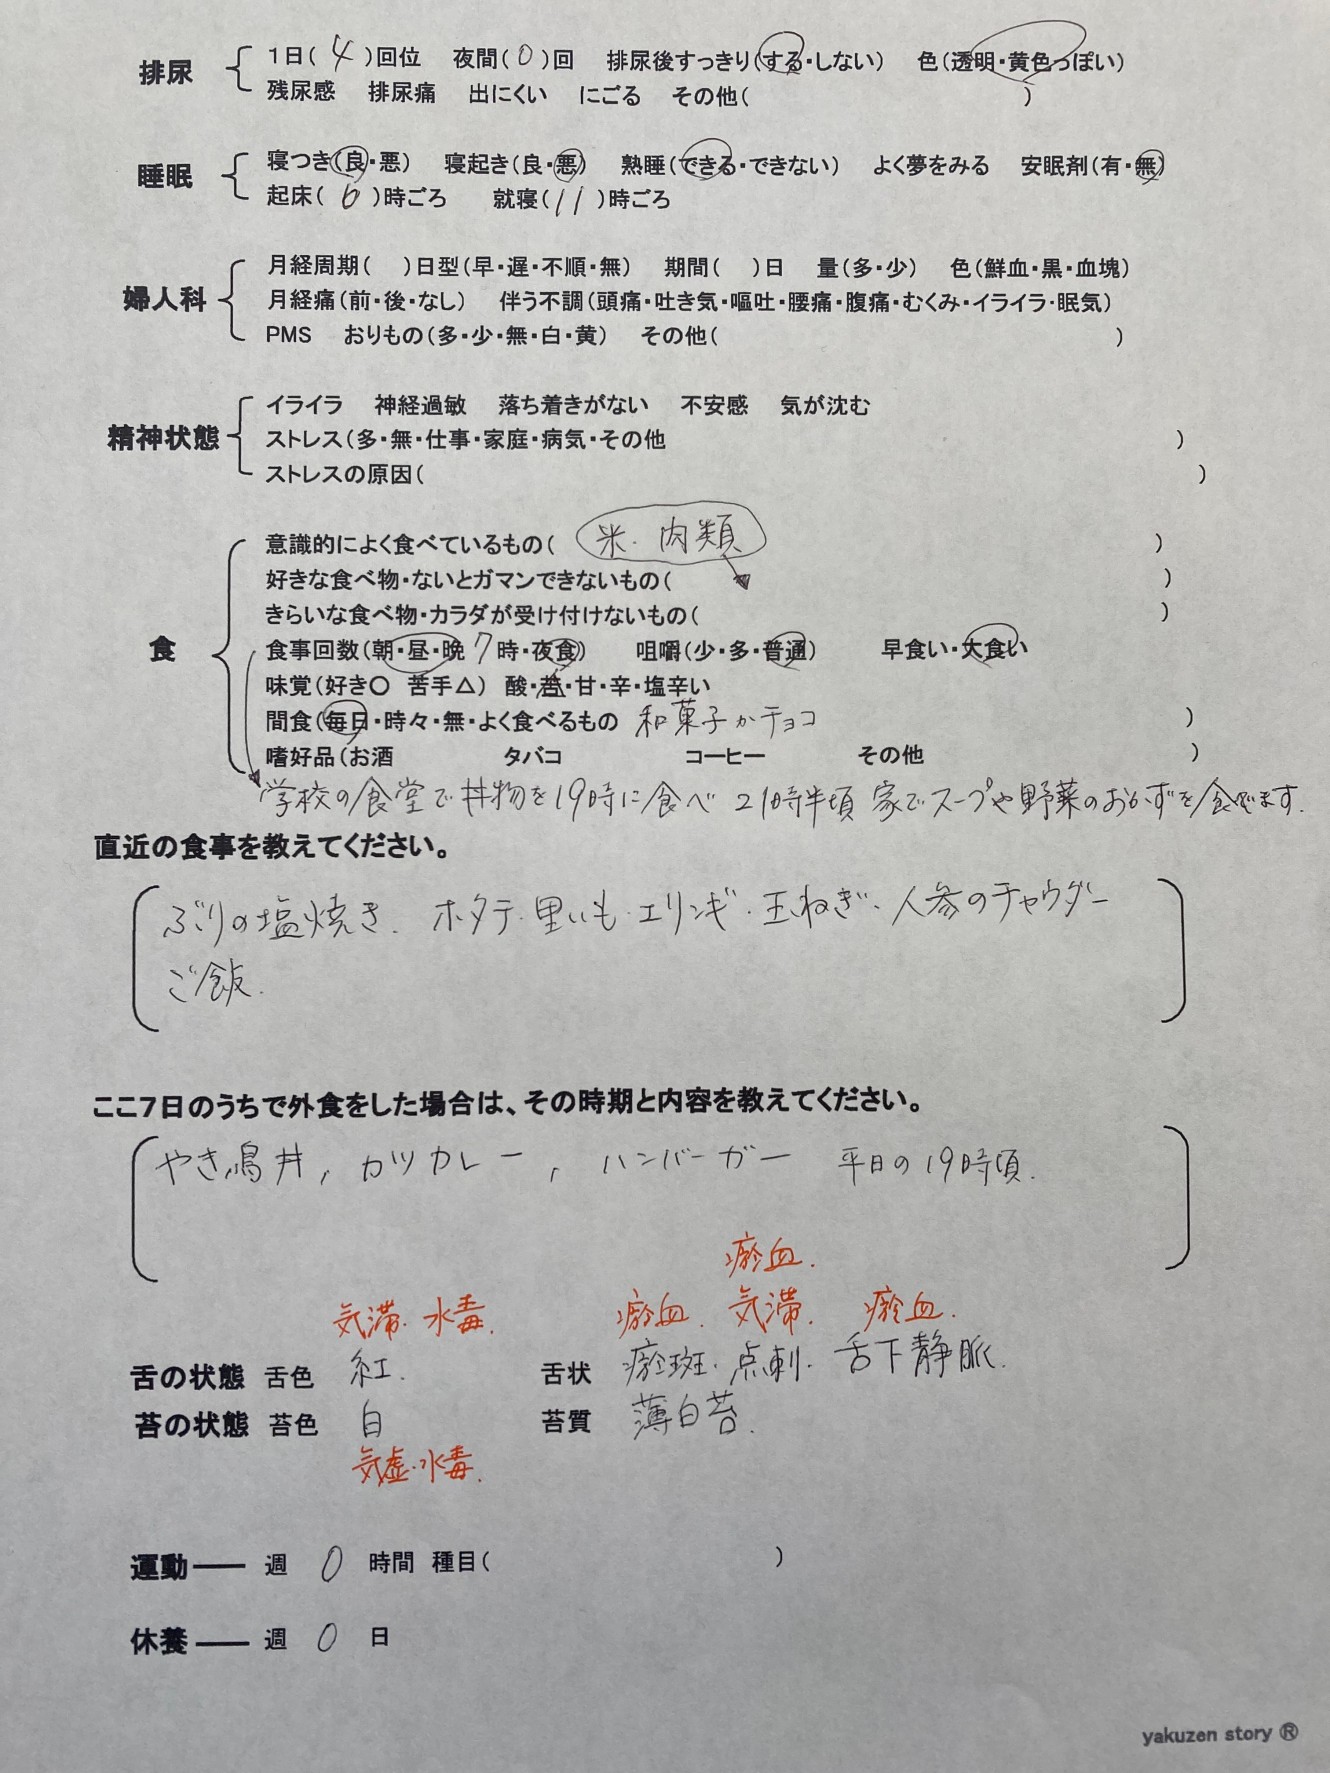 排尿 1日( 4 )回位 夜間( 0 )回 排尿後すっきり(する・しない) 色(透明・黄色っぽい)
残尿感 排尿痛 出にくい にごる その他( )
睡眠 寝つき(良・悪) 寝起き(良・悪) 熟睡(できる・できない) よく夢をみる 安眠剤(有・無)
起床( 6 )時ごろ 就寝( 11 )時ごろ
婦人科 月経周期( )日型(早・遅・不順・無) 期間( )日 量(多・少) 色(鮮血・黒・血塊)
月経痛(前・後・なし) 伴う不調(頭痛・吐き気・嘔吐・腰痛・腹痛・むくみ・イライラ・眠気)
PMS おりもの(多・少・無・白・黄) その他( )
精神状態 イライラ 神経過敏 落ち着きがない 不安感 気が沈む
ストレス(多・無・仕事・家庭・病気・その他 )
ストレスの原因( )
食 意識的によく食べているもの( 米・肉類 )
好きな食べ物・ないとガマンできないもの( )
きらいな食べ物・カラダが受け付けないもの( )
食事回数(朝・昼・晩 7 時・夜食) 咀嚼(少・多・普通) 早食い・大食い
味覚(好き〇 苦手△) 酸・苦・甘・辛・塩辛い
間食(毎日・時々・無・よく食べるもの 和菓子かチョコ )
嗜好品(お酒 タバコ コーヒー その他 )
学校の食堂で丼物を19時に食べ 21時半頃 家でスープや野菜のおかずを食べます.
直近の食事を教えてください。
ぶりの塩焼き. ホタテ・里いも・エリンギ・玉ねぎ・人参のチャウダー
ご飯.
ここ7日のうちで外食をした場合は、その時期と内容を教えてください。
やき鳥丼, カツカレー, ハンバーガー 平日の19時頃.
瘀血.
気滞・水毒. 瘀血. 気滞. 瘀血.
舌の状態 舌色 紅. 舌状 瘀斑・点刺・舌下静脈.
苔の状態 苔色 白 苔質 薄白苔.
気虚・水毒.
運動 ── 週 0 時間 種目( )
休養 ── 週 0 日
yakuzen story Ⓡ